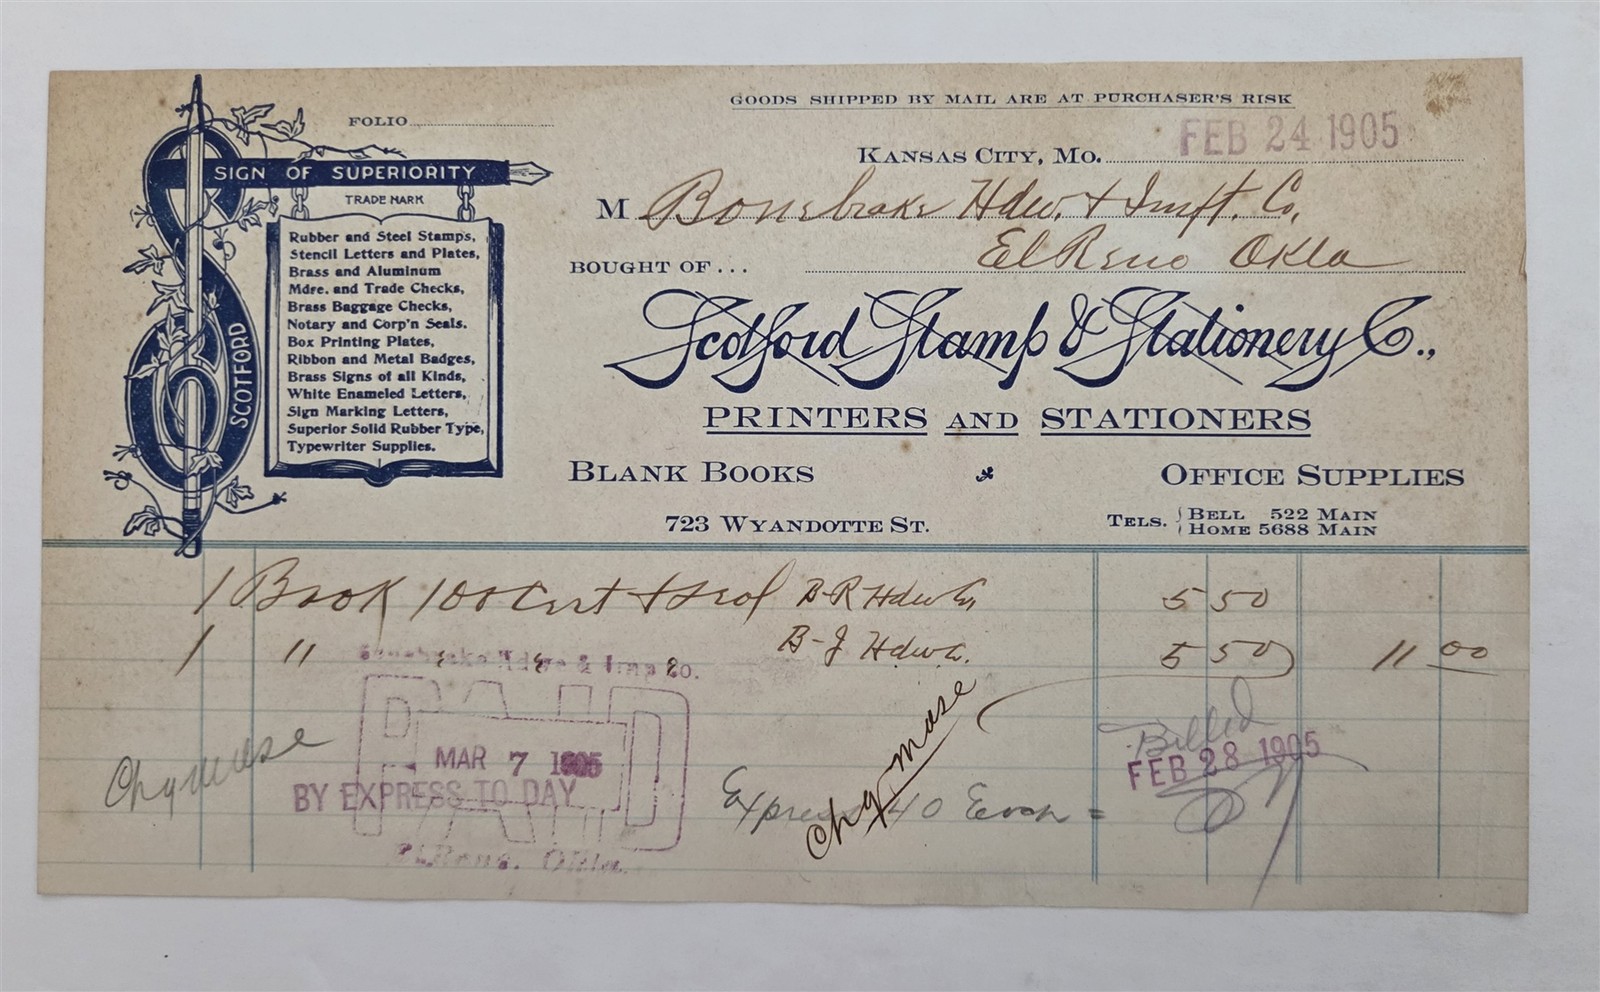 GOODS SHIPPED BY MAIL ARE AT PURCHASER'S RISK
FOLIO
KANSAS CITY, MO. FEB 24 1905
M Bonebrake Hdw. & Impt. Co.
El Reno Okla
BOUGHT OF...
SIGN OF SUPERIORITY
TRADE MARK
SCOTFORD
Rubber and Steel Stamps,
Stencil Letters and Plates,
Brass and Aluminum
Mdre. and Trade Checks,
Brass Baggage Checks,
Notary and Corp'n Seals.
Box Printing Plates,
Ribbon and Metal Badges,
Brass Signs of all Kinds,
White Enameled Letters,
Sign Marking Letters,
Superior Solid Rubber Type,
Typewriter Supplies.
Scotford Stamp & Stationery Co.,
PRINTERS AND STATIONERS
BLANK BOOKS OFFICE SUPPLIES
723 WYANDOTTE ST.
TELS. BELL 522 MAIN
HOME 5688 MAIN
1 Book 100 Cert & Seal B-R Hdw Co 5 50
1 " B-J Hdw Co. 5 50 11 00
Bonebrake Hdwe & Imp Co.
PAID
MAR 7 1905
BY EXPRESS TO DAY
El Reno, Okla.
Chg mdse
Chg mdse
Express 40 Each =
Billed
FEB 28 1905